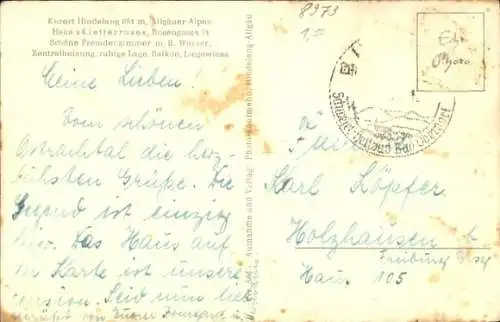 Kurort Hindelang 684 m, Allgäuer Alpen
Haus »Kletterrose«, Rosengasse 74
Schöne Fremdenzimmer m. fl. Wasser,
Zentralheizung, ruhige Lage, Balkon, Liegewiese
8979
1,50
Meine Lieben!
Vom schönen
Ostrachtal die herz-
lichsten Grüße. Die
Gegend ist einzig
hier. Das Haus auf
der Karte ist unsere
Pension. Seid uns
gegrüßt von Eurer
Karl Köpfer
Holzhausen b
Freiburg Brsg
Haus 105
Aufnahme und Verlag: Photo Hindelang-Allgäu